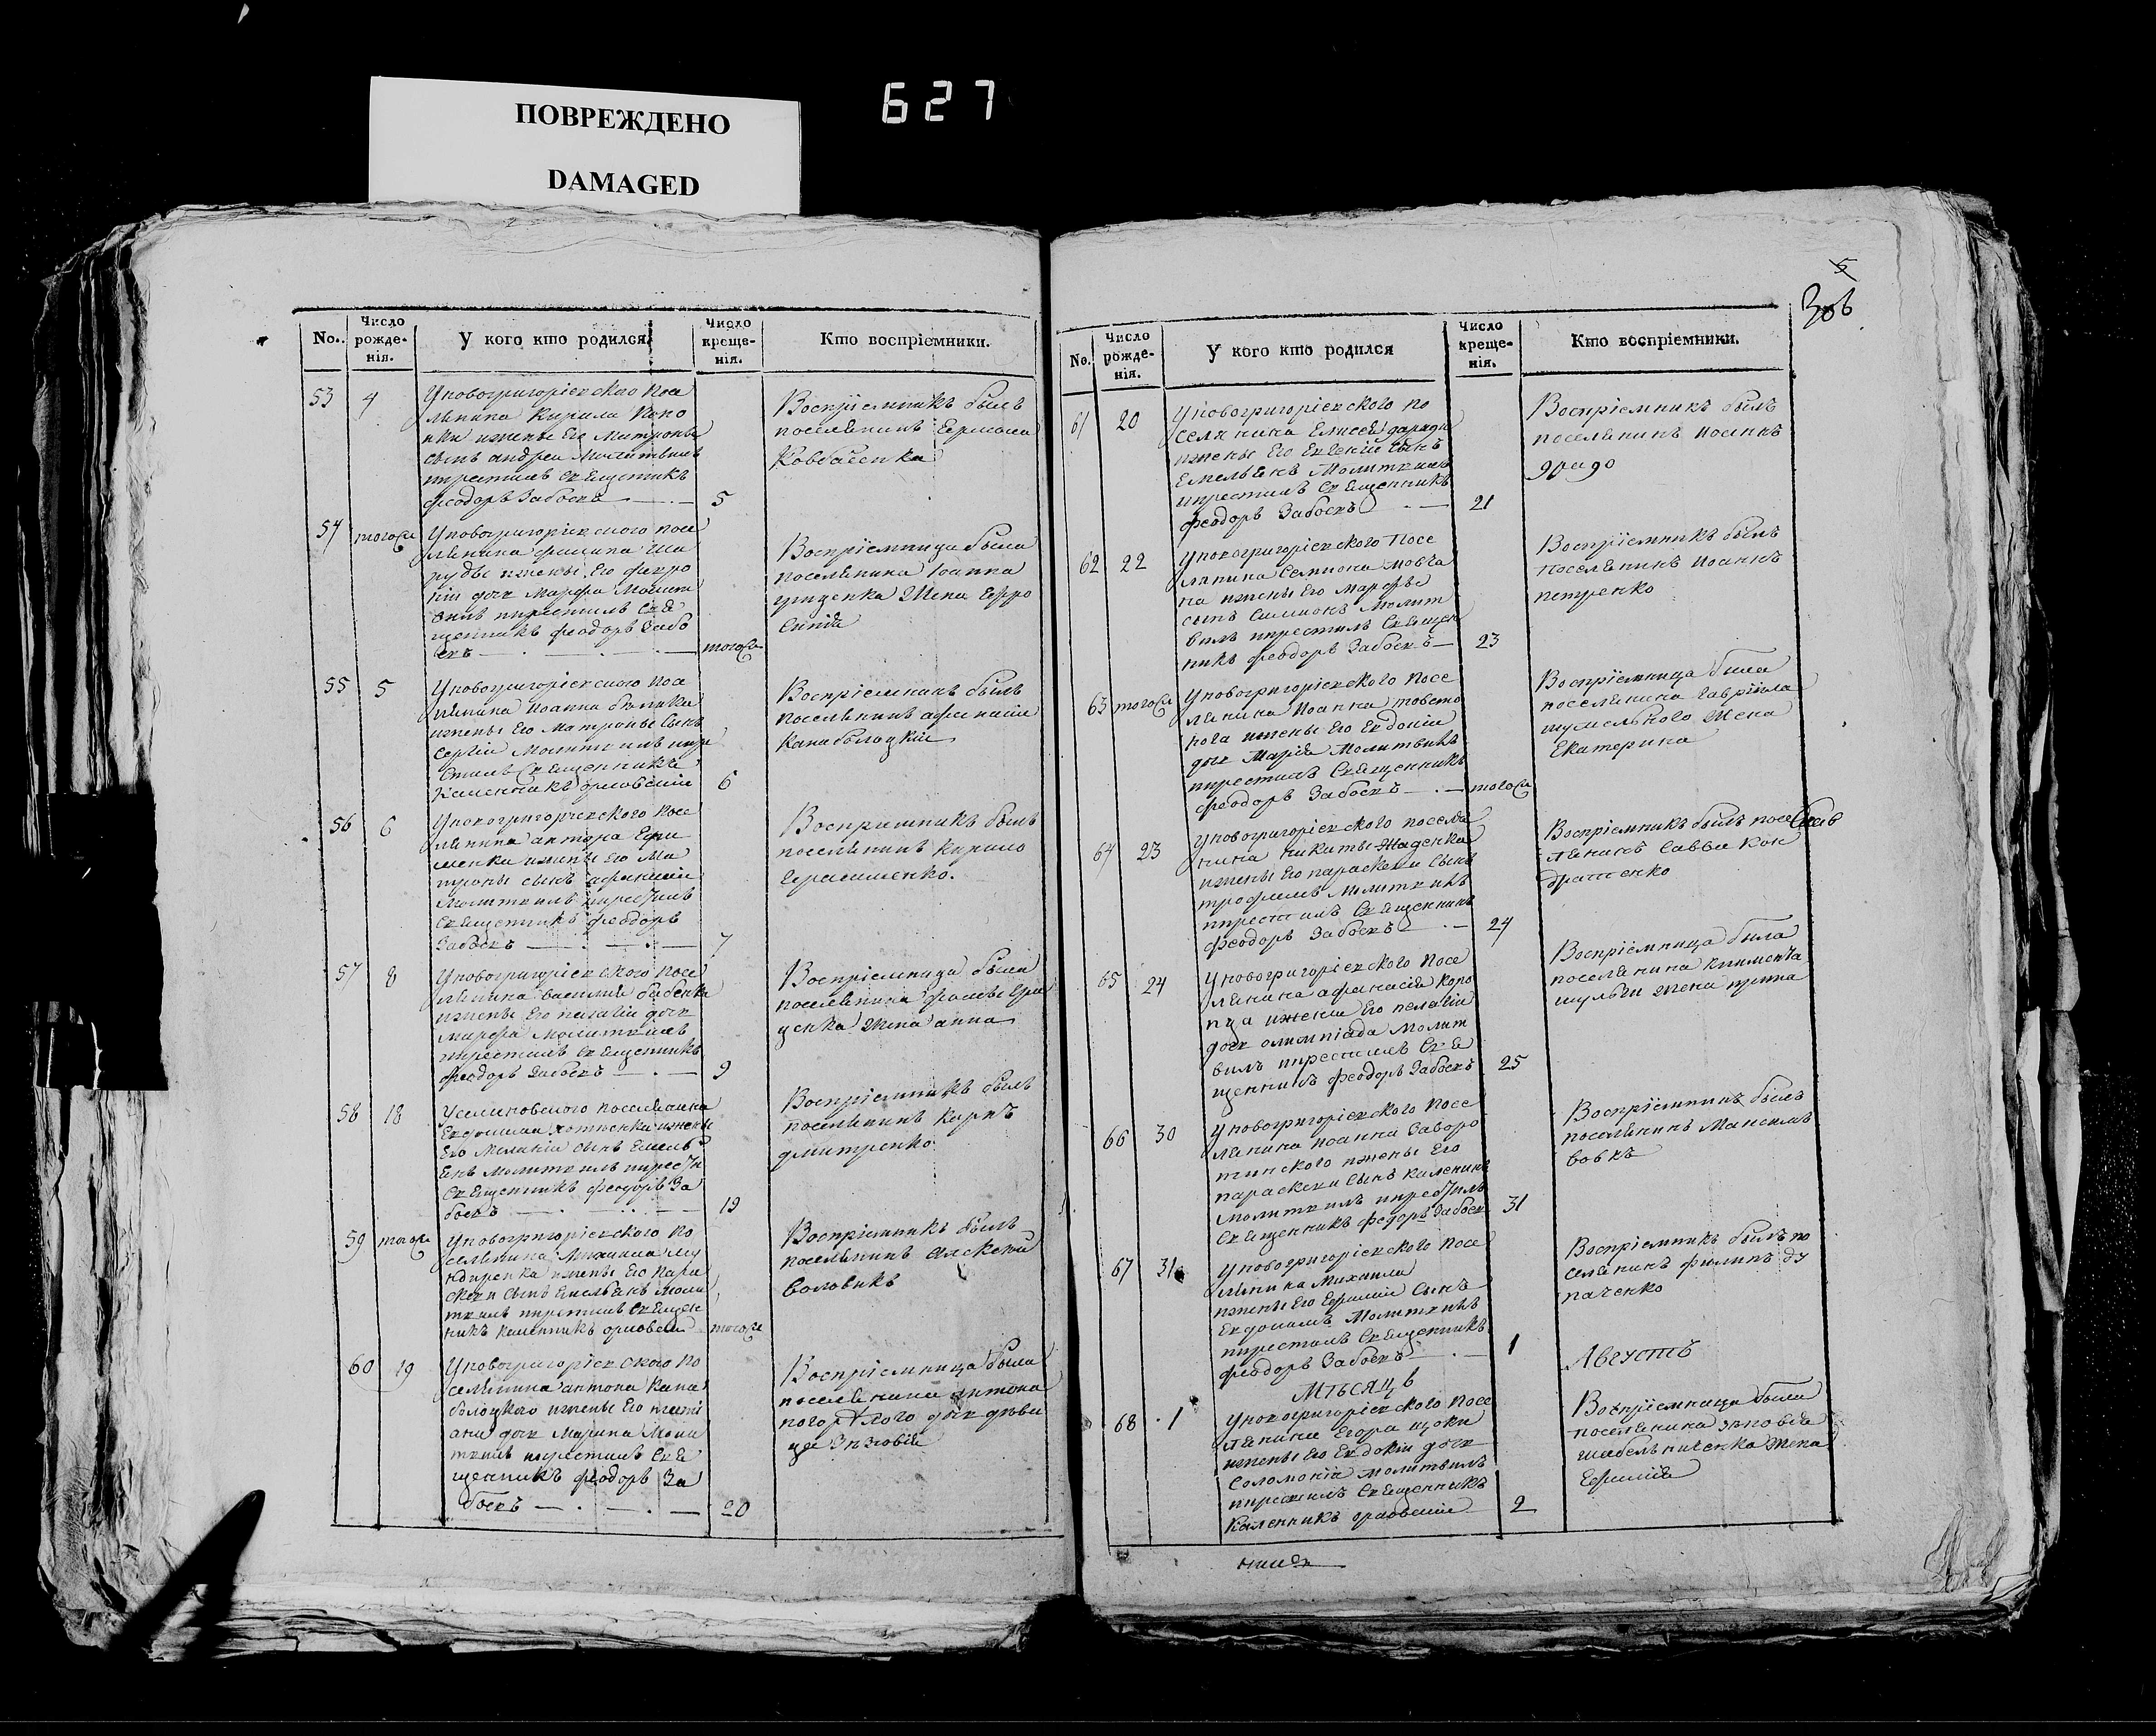 ПОВРЕЖДЕНО
DAMAGED
627
No.
Число рожде-нія.
У кого кто родился
Число креще-нія.
Кто воспріемники.
53 4
Уновогригоріевского посе
лянина Кирила
ижены Его Матроны
сынъ андреи Молитвилъ
икрестилъ священникъ
феодоръ Забоскъ 5
Воспріемникъ былъ
поселянинъ
54 тогоже
Уновогригоріевского посе
лянина филипа Ша
руды ижены Его февро
ніи дочь Марфа Молит
вилъ икрестилъ свя
щенникъ феодоръ Забо
скъ тогоже
Воспріемница была
поселянина Іоанна
гриценка Жена Ефро
синія
55 5
Уновогригоріевского посе
лянина Иоанна
ижены Его Матроны сынъ
Сергіи Молитвилъ икре
стилъ священникъ
Каленникъ орловскіи 6
Воспріемникъ былъ
поселянинъ афанасіи
Канаболоцкіи
56 6
Уновогригоріевского посе
лянина антона Ефи
менка ижены Его Ма
троны сынъ
Молитвилъ икрестилъ
священникъ феодоръ
Забоскъ 7
Воспріемникъ былъ
поселянинъ Кирило
Герасименко.
57 8
Уновогригоріевского посе
лянина василия бабенка
ижены Его пелагіи дочь
марфа Молитвилъ
икрестилъ священникъ
феодоръ Забоскъ 9
Воспріемница была
поселянина фомы Гри
ценка Жена анна
58 18
поселянина
Евдокима ижены
Его Меланіи сынъ Емель
янъ Молитвилъ икрести
священникъ феодоръ За
боскъ 19
Воспріемникъ былъ
поселянинъ Карпъ
дмитренко
59 тогоже
Уновогригоріевского по
селянина Михаила
ижены Его пара
скеви сынъ Емельянъ Моли
твилъ икрестилъ священ
никъ Каленникъ орловскіи тогоже
Воспріемникъ былъ
поселянинъ алексеи
воловикъ
60 19
Уновогригоріевского по
селянина антона Кана
болоцкого ижены Его
дочь Марина Моли
твилъ икрестилъ свя
щенникъ феодоръ За
боскъ 20
Воспріемница была
поселянина антона
погорѣлого дочь дѣви
ца Зѣновія
306
No.
Число рожде-нія.
У кого кто родился
Число креще-нія.
Кто воспріемники.
61 20
Уновогригоріевского по
селянина Елисея
ижены Его Евгеніи сынъ
Емельянъ Молитвилъ
икрестилъ священникъ
феодоръ Забоскъ 21
Воспріемникъ былъ
поселянинъ Иоаннъ
62 22
Уновогригоріевского посе
лянина Семиона мовча
на ижены Его Марфы
сынъ Симионъ Молит
вилъ икрестилъ священ
никъ феодоръ Забоскъ 23
Воспріемникъ былъ
поселянинъ Иоаннъ
петренко
63 тогоже
Уновогригоріевского посе
лянина Иоанна товсто
нога ижены Его Евдокіи
дочь Марія Молитвилъ
икрестилъ священникъ
феодоръ Забоскъ тогоже
Воспріемница была
поселянина Гавріила
Жена
Екатерина
64 23
Уновогригоріевского поселя
нина никиты
ижены Его параскеви сынъ
трофимъ Молитвилъ
икрестилъ священникъ
феодоръ Забоскъ 24
Воспріемникъ былъ посе
лянинъ Савва Кон
дратенко
65 24
Уновогригоріевского посе
лянина афанасія Коро
пца ижены Его пелагіи
дочь олимпіада Молит
вилъ икрестилъ свя
щенникъ феодоръ Забоскъ 25
Воспріемница была
поселянина климента
шульги жена ирина
66 30
Уновогригоріевского посе
лянина иоанна Заворо
тинского ижены Его
параскеви сынъ каленикъ
Молитвилъ икрестилъ
священникъ федоръ Забоск 31
Воспріемникъ былъ
поселянинъ Максимъ
вовкъ
67 31
Уновогригоріевского посе
лянина Михаила
ижены Его Ефиміи сынъ
Евдокимъ Молитвилъ
икрестилъ священникъ
феодоръ Забоскъ 1
Воспріемникъ былъ по
селянинъ филипъ ду
паченко
Мѣсяцъ Августъ
68 1
Уновогригоріевского посе
лянина Егора щоки
ижены Его Евдокіи дочь
Соломонія молитвилъ
икрестилъ священникъ
Каленникъ орловскіи 2
Воспріемница была
поселянина зѣновія
шабельниченка Жена
Ефимія